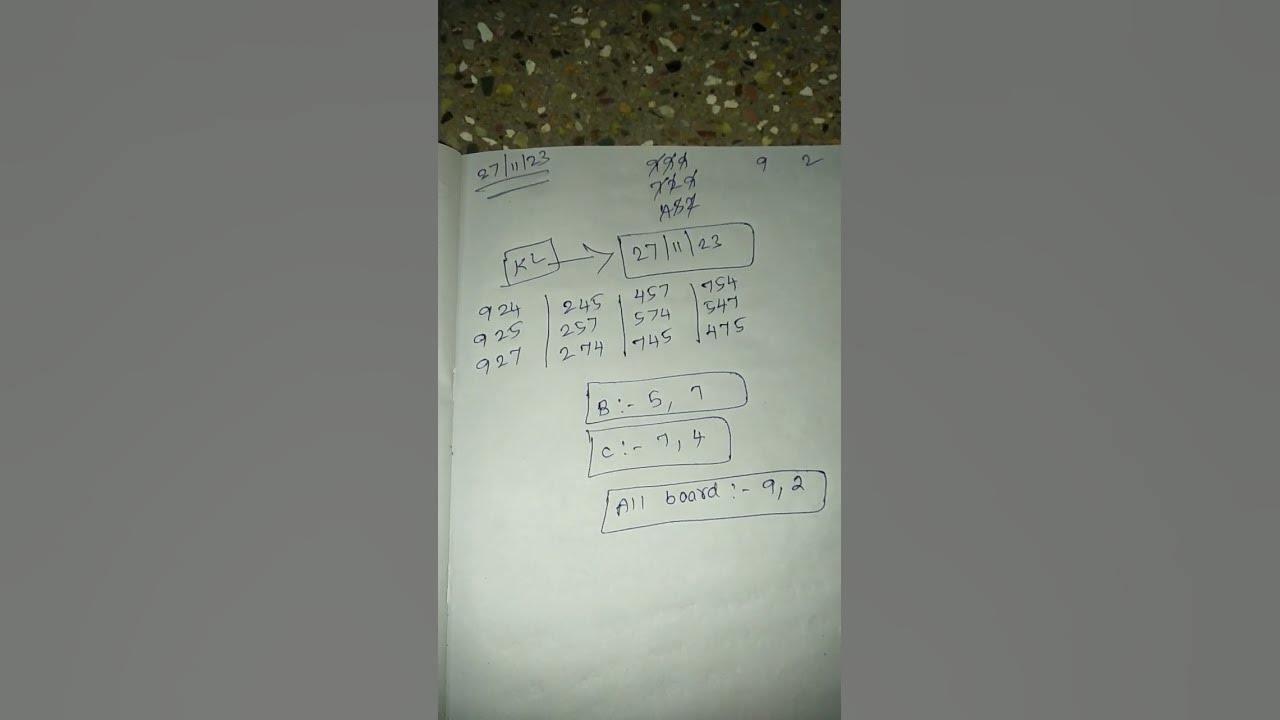 27/11/23
9 2
KL → 27/11/23
924 | 245 | 457 | 754
925 | 257 | 574 | 547
927 | 274 | 745 | 475
B:- 5, 7
C:- 7, 4
All board:- 9, 2